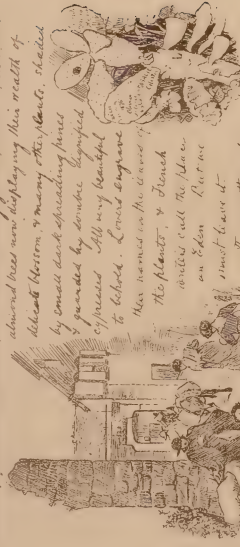 almond trees now displaying their wealth of
delicate blossom & many other plants, shaded
by small dark spreading pines
& guarded by sombre dignified
cypresses All very beautiful
to behold. Lovers engrave
their names on the leaves of
the plants & French
writers call the place
an Eden But we
must leave it